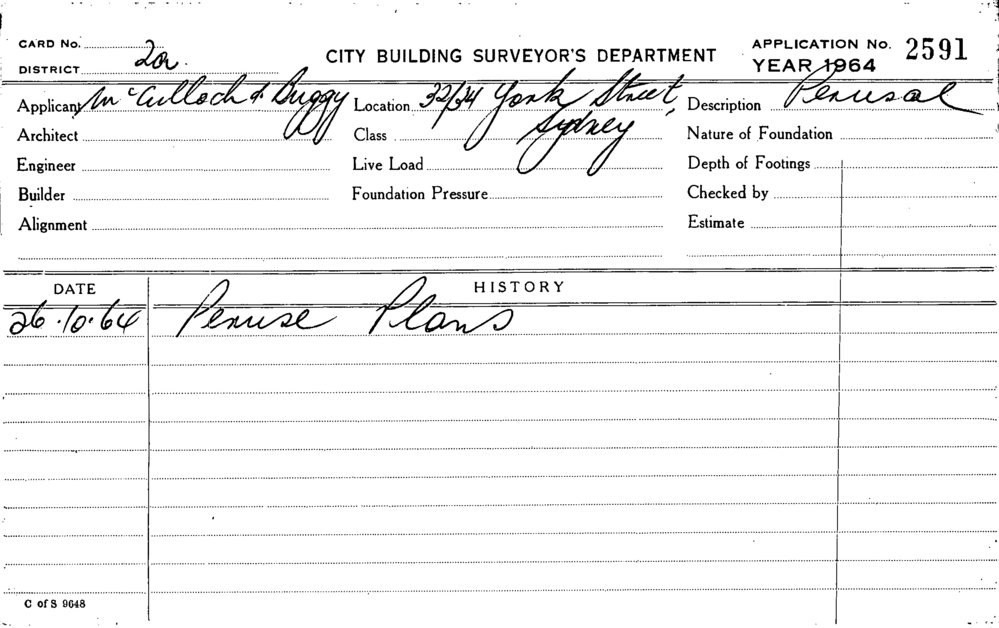 CARD No.
DISTRICT 2a.
CITY BUILDING SURVEYOR'S DEPARTMENT
APPLICATION No. 2591
YEAR 1964
Applicant McCulloch & Buggy
Location 32/34 York Street,
Sydney
Description Perusal
Architect
Class
Nature of Foundation
Engineer
Live Load
Depth of Footings
Builder
Foundation Pressure
Checked by
Alignment
Estimate
DATE
HISTORY
26.10.64 Peruse Plans
C of S 9648